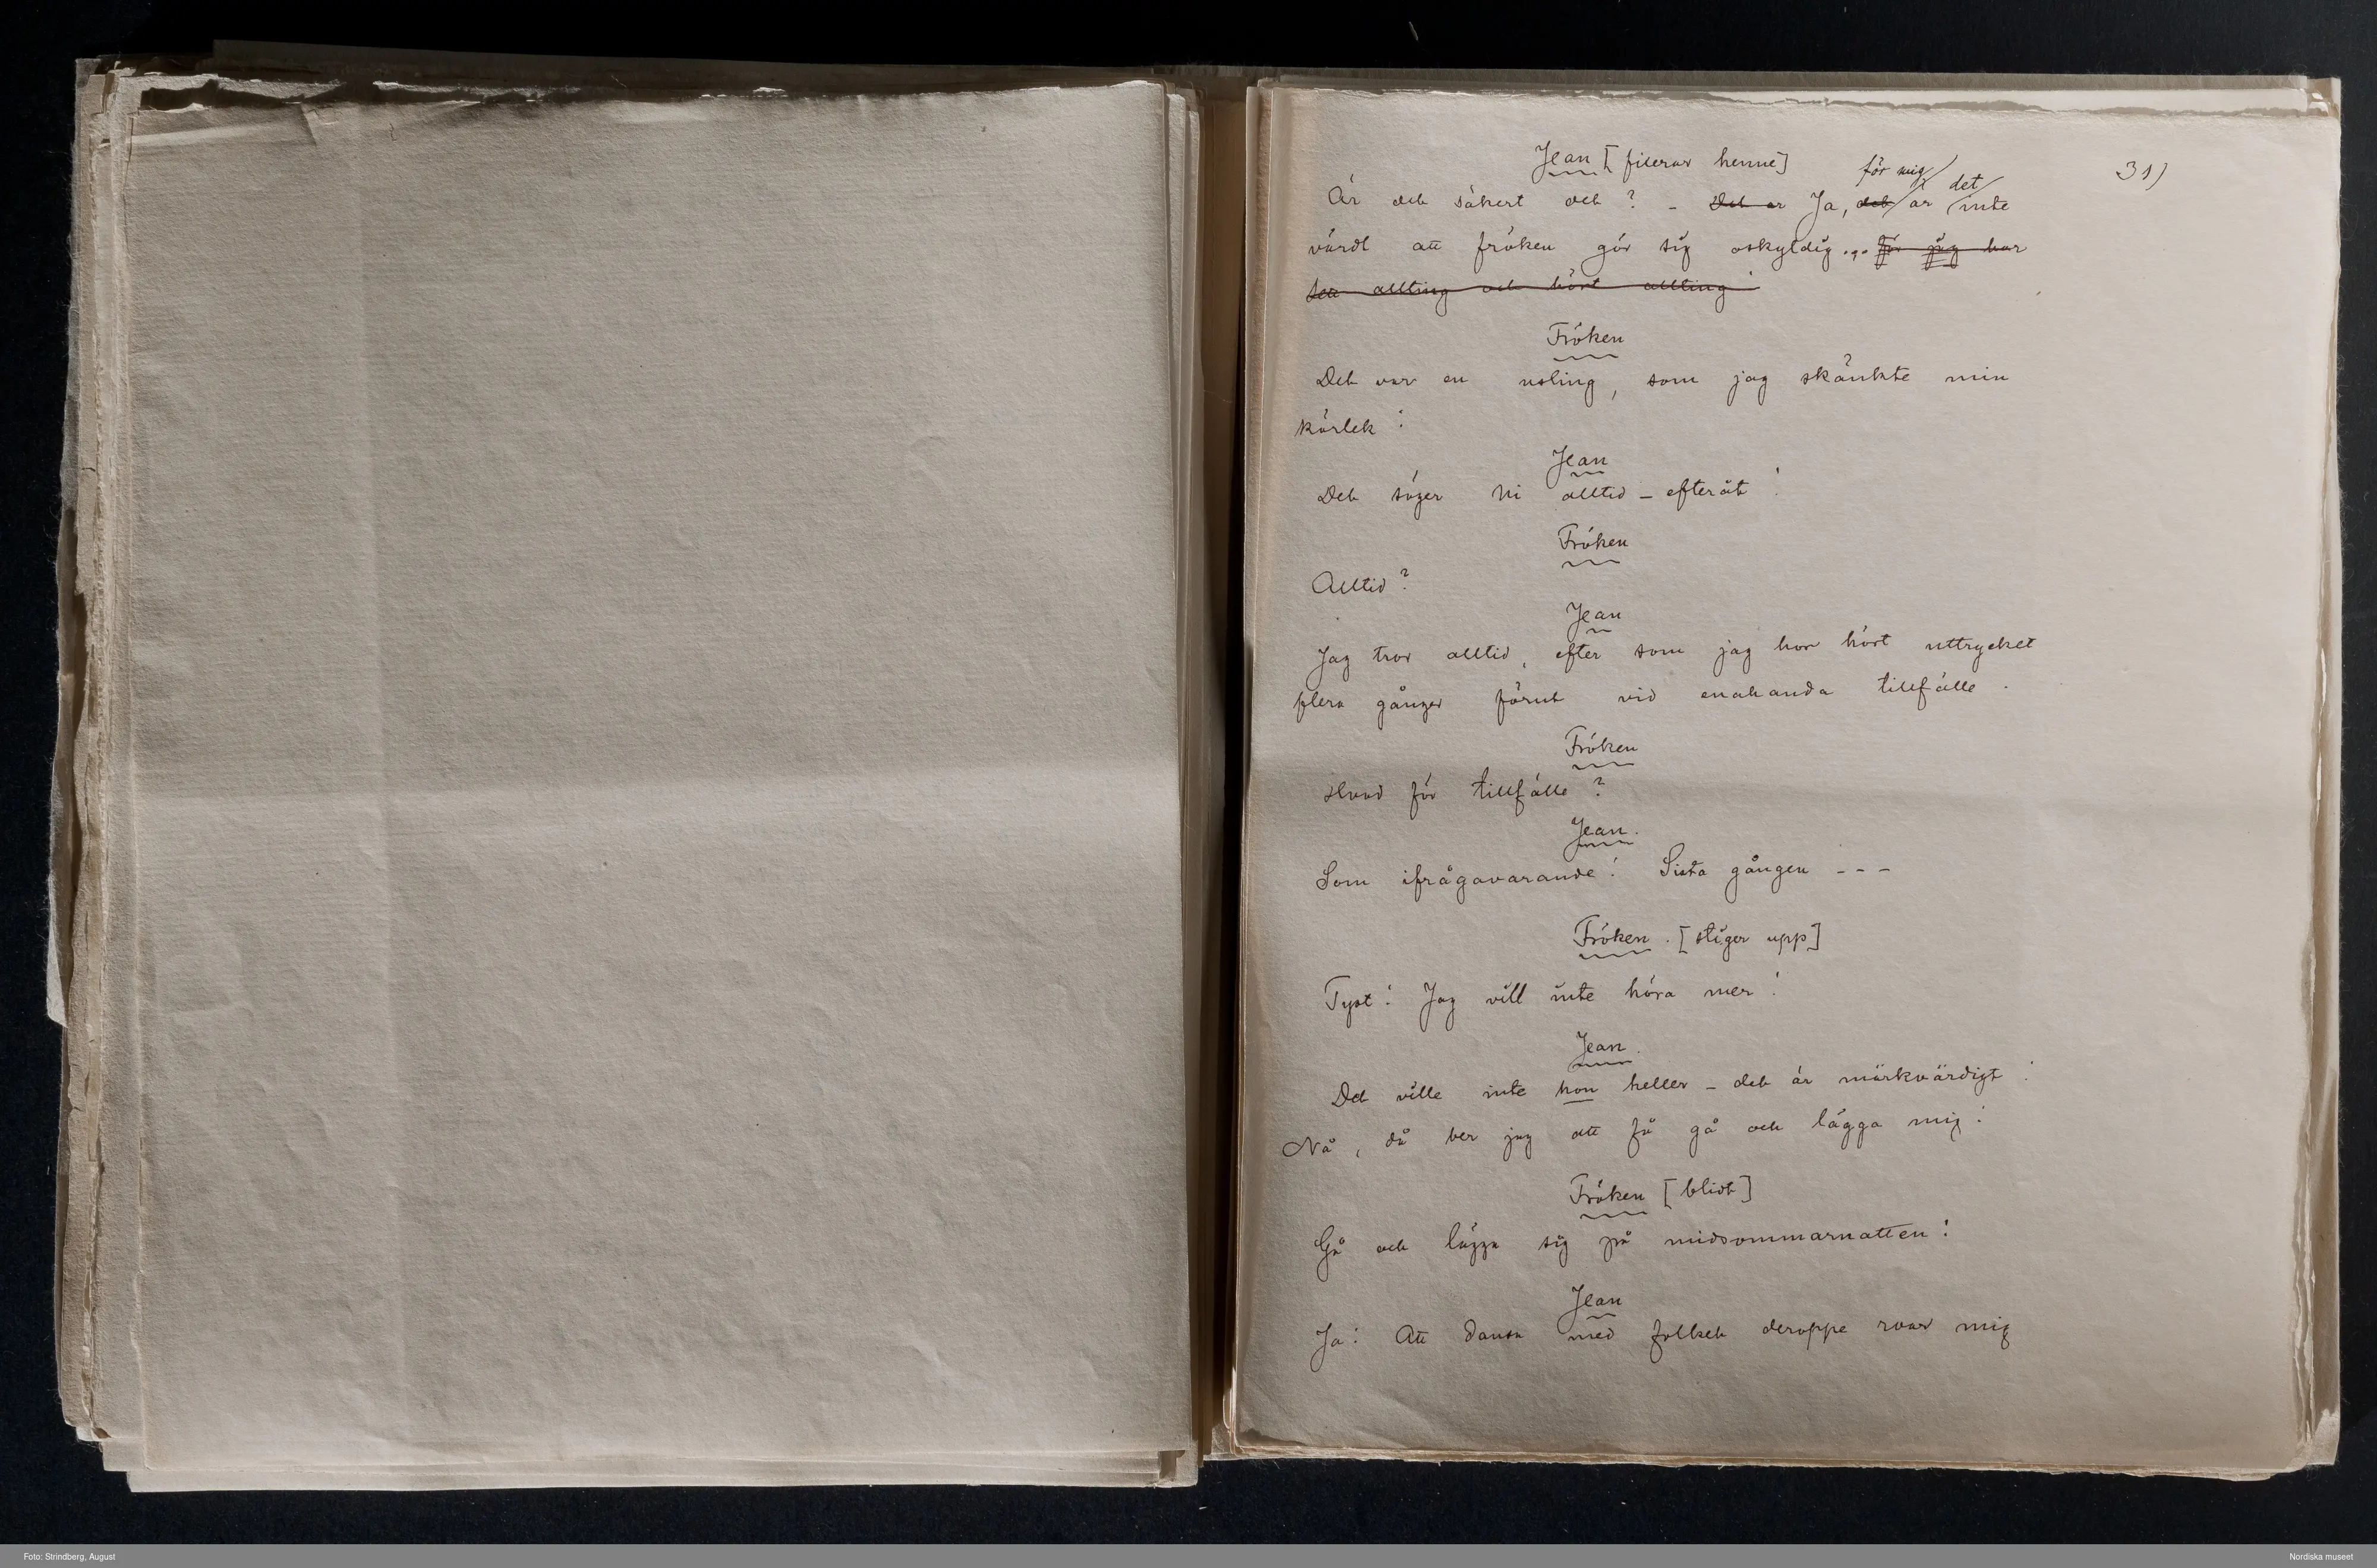 31)
Jean [fixerar henne]
för mig det
Är det säkert det? – Det är Ja, det är inte
värdt att fröken gör sig oskyldig... för jag har
sett allting och hört allting!
Fröken
Det var en usling, som jag skänkte min
kärlek!
Jean
Det säger Ni alltid – efteråt!
Fröken
Alltid?
Jean
Jag tror alltid, efter som jag har hört uttrycket
flera gånger förut vid enahanda tillfälle.
Fröken
Hvad för tillfälle?
Jean.
Som ifrågavarande! Sista gången - - -
Fröken. [stiger upp]
Tyst! Jag vill inte höra mer!
Jean.
Det ville inte hon heller – det är märkvärdigt!
Nå, då ber jag att få gå och lägga mig!
Fröken [blidt]
Gå och lägga sig på midsommarnatten!
Jean
Ja! Att dansa med folket deroppe roar mig
Foto: Strindberg, August
Nordiska museet